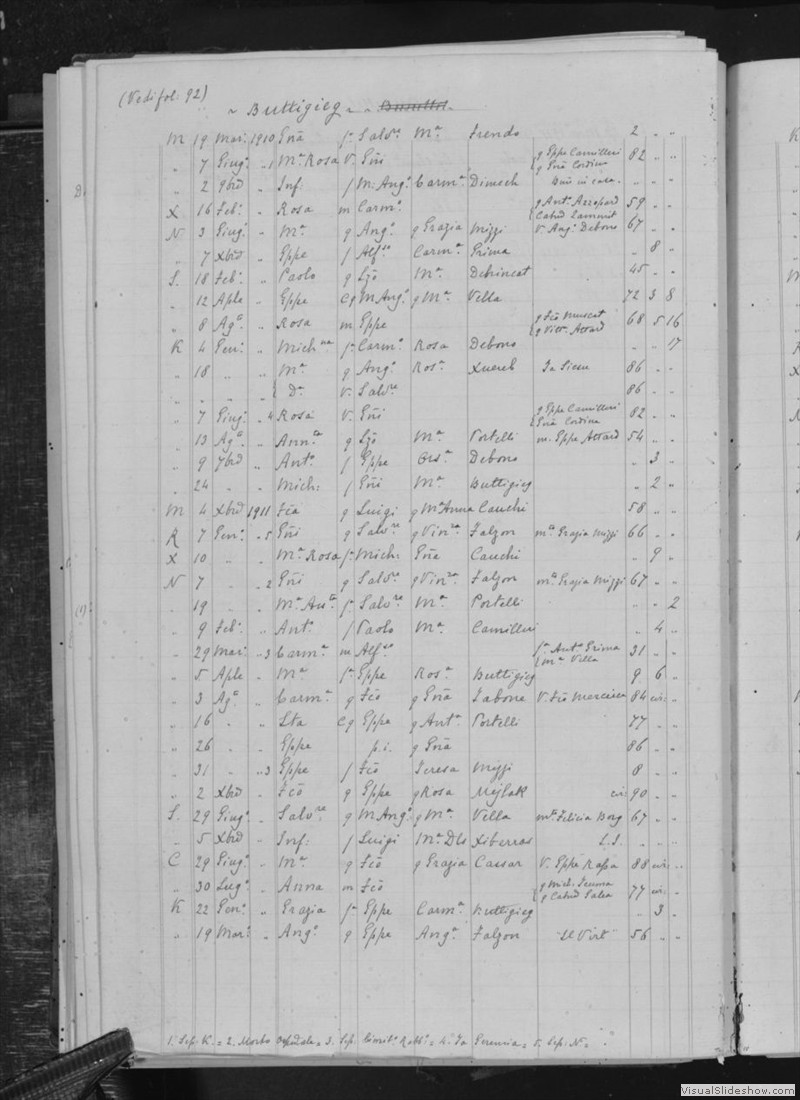 (Vedi fol: 92)
~ Buttigieg ~
M 19 Mar: 1910 Gña fª Salvre Mª Grendo 2 " "
" 7 Giugº " 1 Mª Rosa V. Gñi { q Gppe Camilleri q Gña Cordina 82 " "
" 2 9bre " Inf: f M: Angº Carmª Dimech Bm in casa. " " "
X 16 Febº " Rosa m Carmº { q Antº Azzopard Catnd Zammit 59 " "
N 3 Giugº " Mª q Angº q Grazia Mizzi V. Angº Debono 67 " "
" 7 Xbre " Gppe f Alfso Carmª Grima " 8 "
S. 18 Febº " Paolo q Lzo Mª Debrincat 45 " "
" 12 Aple " Gppe Cg M Angº q Mª Vella 72 3 8
" 8 Agº " Rosa m Gppe { q Fco Muscat q Vitº Attard 68 5 16
K 4 Genº " Mich fª Carmº Rosa Debono " " 17
" 18 " " Mª q Angº Rosª Xuereb Ta 86 " "
" " " " { Dª V. Salvre 86 " "
" 7 Giugº " 4 Rosa V. Gñi { q Gppe Camilleri Gña Cordina 82 " "
" 13 Agº " Annta q Lzo Mª Portelli m. Gppe Attard 54 " "
" 9 7bre " Antº f Gppe Orsª Debono " 3 "
" 24 " " Mich: f Gñi Mª Buttigieg " 2 "
M 4 Xbre 1911 Fca q Luigi q Mª Anna Cauchi 58 " "
R 7 Genº " 5 Gñi q Salvre q Vinza Falzon mto Grazia Mizzi 66 " "
X 10 " " Mª Rosa fª Mich: Gña Cauchi " 9 "
N 7 " " 2 Gñi q Salvre q Vinza Falzon mto Grazia Mizzi 67 " "
" 19 " " Mª Antª fª Salvre Mª Portelli " " 2
" 9 Febº " Antº f Paolo Mª Camilleri " 4 "
" 29 Mar: " 3 Carmª m Alfso { fª Antº Grima mª Villa 31 " "
" 5 Aple " Mª fª Gppe Rosª Buttigieg 9 6 "
" 3 Agº " Carmª q Fco q Gña Tabone V. Fco Mercieca 84 cir: "
" 16 " " Lta Cg Gppe q Antª Portelli 77 " "
" 26 " " Gppe p.i. q Gña 86 " "
" 31 " " 3 Gppe f Fco Teresa Mizzi 8 " "
" 2 Xbre " Fco q Gppe q Rosa Mejlak cir: 90 " "
S. 29 Giugº " Salvre q M Angº q Mª Vella mto Felicia Borg 67 " "
" 5 Xbre " Inf: f Luigi Mª Dls Xiberras L.S. " " "
C 29 Giugº " Mª q Fco q Grazia Cassar V. Gppe 88 cir: "
" 30 Lugº " Anna m Fco { q Mich: q Catnd Galea 77 cir: "
K 22 Genº " Grazia fª Gppe Carmª Buttigieg " 3 "
" 19 Mar: " Angº q Gppe Angª Falzon 56 " "
1. Sep: K. = 2. Morto Ospedale = 3. Sep. Cimitº Rabbº = 4. Ta = 5. Sep: N =
VisualSlideshow.com